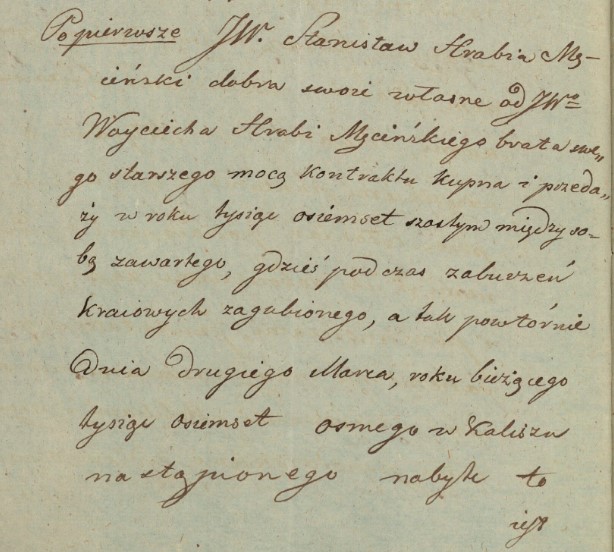 Popierwsze JW. Stanisław Hrabia Mę-
ciński dobra swoie własne od JWo
Woyciecha Hrabi Męcińskiego brata swe„
go starszego mocą kontraktu kupna i przeda„
ży w roku tysiąc osiemset szostym między so-
bą zawartego, gdzieś podczas zaburzeń
kraiowych zagubionego, a tak powtórnie
Dnia drugiego Marca, roku bieżącego
tysiąc osiemset osmego w Kaliszu
nastąpionego nabyte to
iest